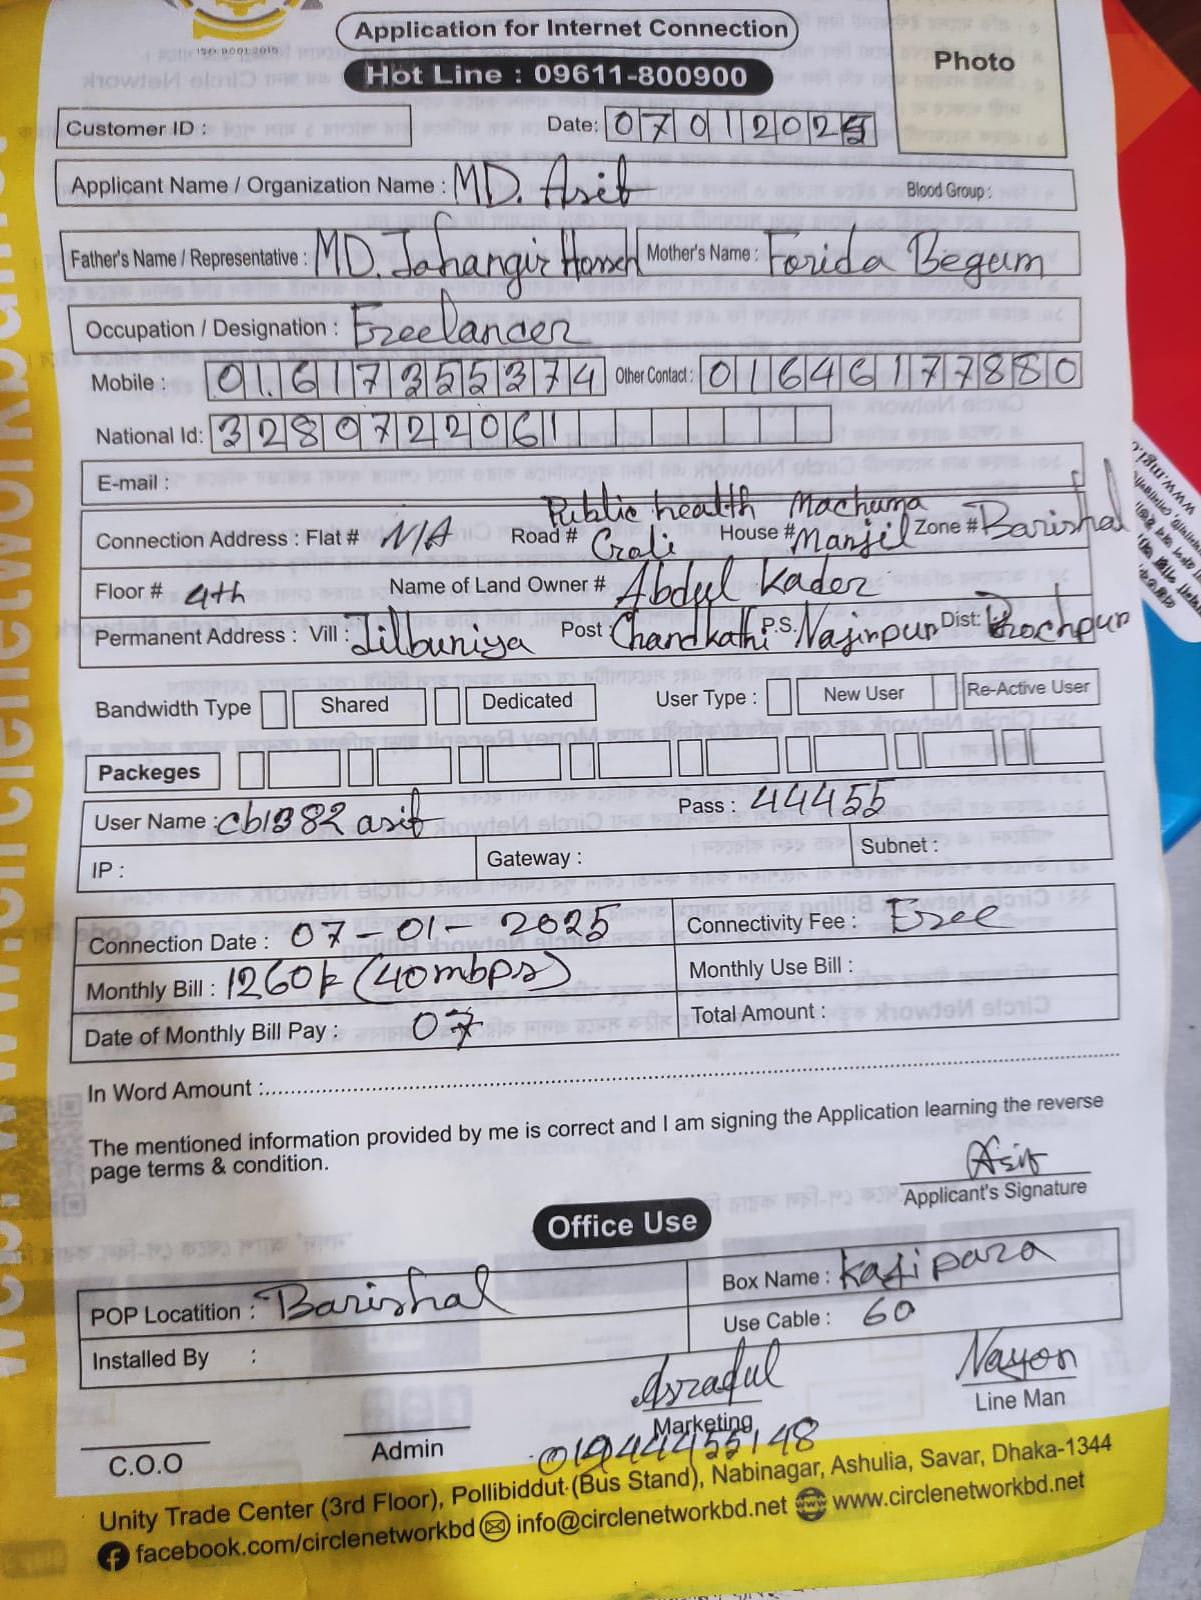 ISO 9001:2015
Application for Internet Connection
Hot Line : 09611-800900
Photo
Customer ID :
Date: 07012025
Applicant Name / Organization Name : MD. Asif
Blood Group :
Father's Name / Representative : MD. Jahangir Hossen Mother's Name : Forida Begum
Occupation / Designation : Freelancer
Mobile : 01617355374 Other Contact : 01646177880
National Id: 3280722061
E-mail :
Connection Address : Flat # N/A Road # Public health Goli House # Machuma Manjil Zone # Barishal
Floor # 4th Name of Land Owner # Abdul Kader
Permanent Address : Vill : Jilbuniya Post Chandkathi P.S. Najirpur Dist: Pirochpur
Bandwidth Type Shared Dedicated User Type : New User Re-Active User
Packeges
User Name : cb1382 asif Pass : 44455
IP : Gateway : Subnet :
Connection Date : 07-01-2025 Connectivity Fee : Free
Monthly Bill : 1260 (40mbps) Monthly Use Bill :
Date of Monthly Bill Pay : 07 Total Amount :
In Word Amount :
The mentioned information provided by me is correct and I am signing the Application learning the reverse
page terms & condition.
Asif
Applicant's Signature
Office Use
POP Locatition : Barishal Box Name : Kazipara
Use Cable : 60
Installed By :
Asraful Nayon
C.O.O Admin Marketing Line Man
01944455148
Unity Trade Center (3rd Floor), Pollibiddut (Bus Stand), Nabinagar, Ashulia, Savar, Dhaka-1344
facebook.com/circlenetworkbd info@circlenetworkbd.net www.circlenetworkbd.net